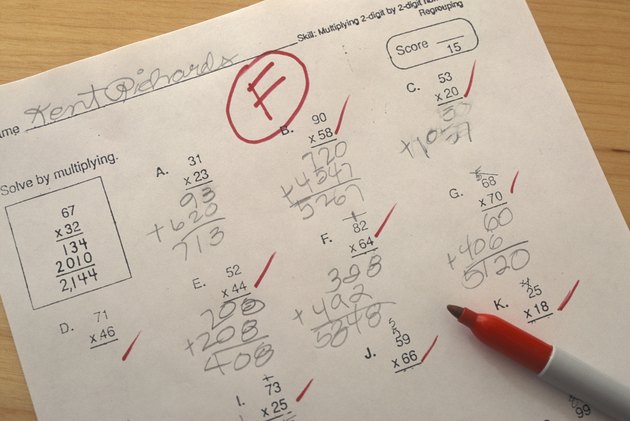 Skill: Multiplying 2-digit by 2-digit
Regrouping
Score
15
Kent Richards
F
Solve by multiplying.
67
x 32
134
2010
2,144
A. 31
x 23
93
+ 620
713
B. 90
x 58
720
+ 4547
5267
C. 53
x 20
D. 71
x 46
E. 52
x 44
208
+ 208
408
F. 82
x 64
328
+ 492
G. 68
x 70
60
+ 406
5120
I. 73
x 25
J. 59
x 66
K. 25
x 18
99